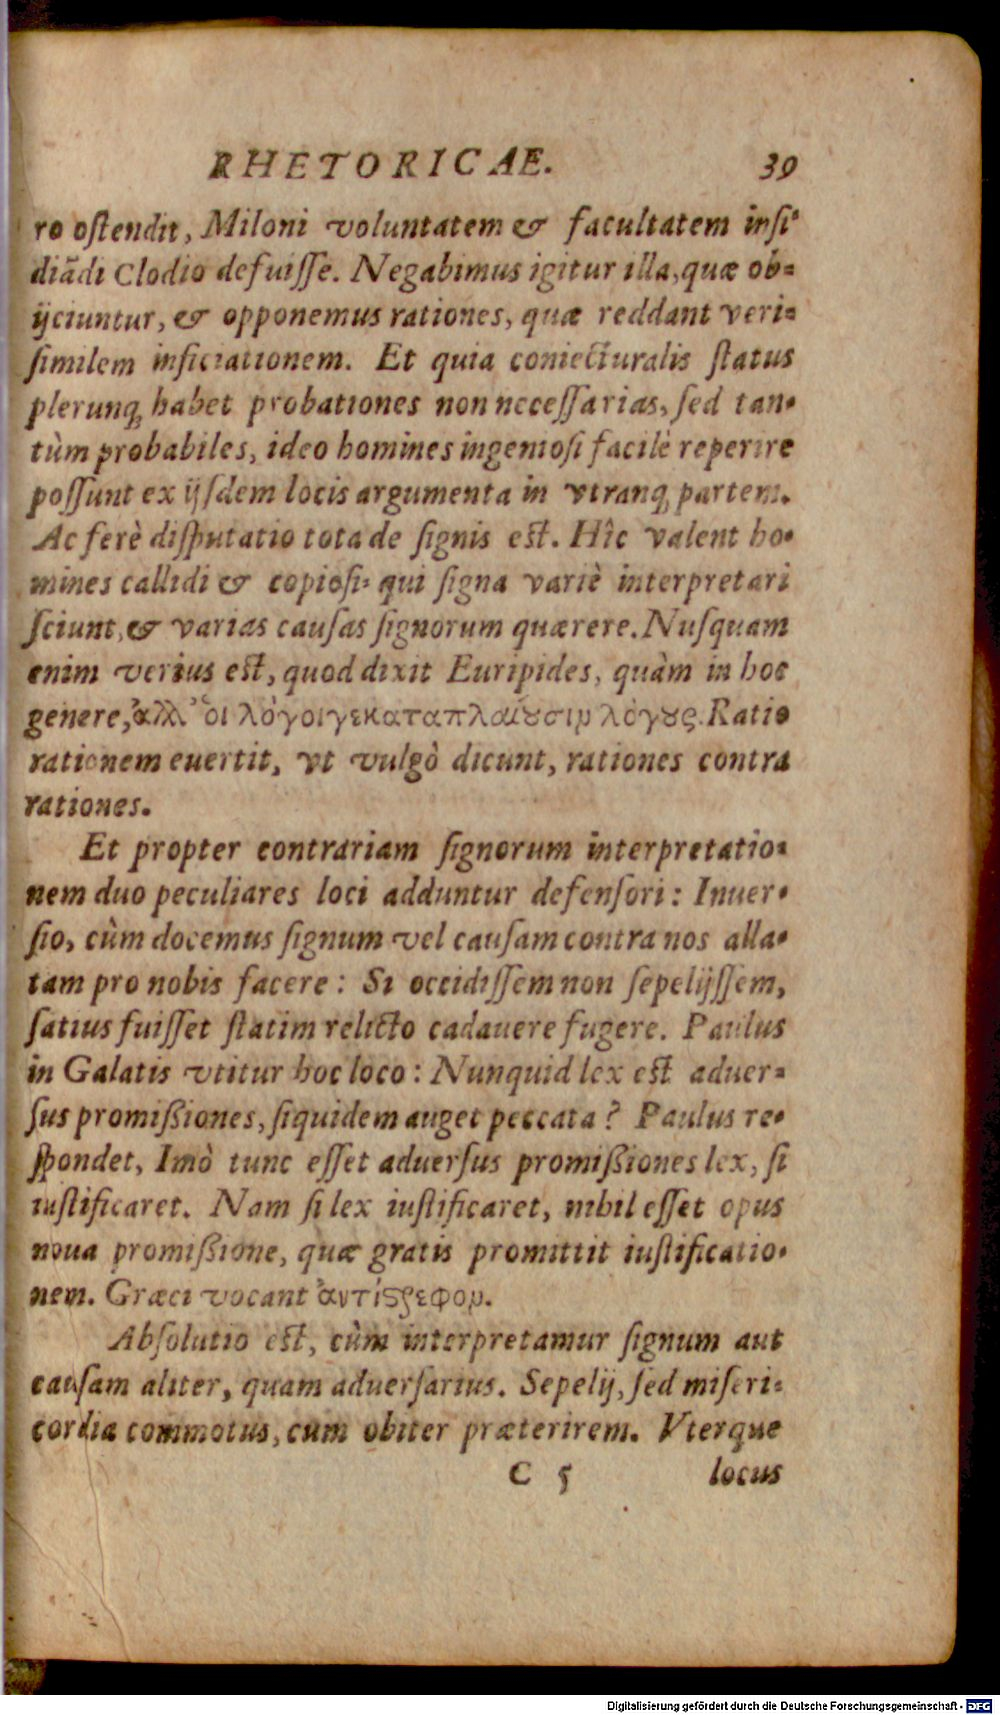 RHETORICAE. 39
ro oſtendit, Miloni voluntatem & facultatem inſi-
diãdi Clodio defuiſſe. Negabimus igitur illa, quæ ob-
ijciuntur, & opponemus rationes, quæ reddant veri-
ſimilem inficiationem. Et quia coniecturalis ſtatus
plerunq; habet probationes non neceſſarias, ſed tan-
tùm probabiles, ideo homines ingenioſi facilè reperire
poſſunt ex ijſdem locis argumenta in vtranq; partem.
Ac ferè diſputatio tota de ſignis eſt. Hîc valent ho-
mines callidi & copioſi: qui ſigna variè interpretari
ſciunt, & varias cauſas ſignorum quærere. Nuſquam
enim verius eſt, quod dixit Euripides, quàm in hoc
genere, ἀλλ' οἱ λόγοι γε καταπλαίουσιν λόγους. Ratio
rationem euertit, vt vulgò dicunt, rationes contra
rationes.
Et propter contrariam ſignorum interpretatio-
nem duo peculiares loci adduntur defenſori: Inuer-
ſio, cùm docemus ſignum vel cauſam contra nos alla-
tam pro nobis facere: Si occidiſſem non ſepelijſſem,
ſatius fuiſſet ſtatim relicto cadauere fugere. Paulus
in Galatis vtitur hoc loco: Nunquid lex eſt aduer-
ſus promißiones, ſiquidem auget peccata? Paulus re-
ſpondet, Imò tunc eſſet aduerſus promißiones lex, ſi
iuſtificaret. Nam ſi lex iuſtificaret, nihil eſſet opus
noua promißione, quæ gratis promittit iuſtificatio-
nem. Græci vocant ἀντίστρεφον.
Abſolutio eſt, cùm interpretamur ſignum aut
cauſam aliter, quam aduerſarius. Sepelij, ſed miſeri-
cordia commotus, cum obiter præterirem. Vterque
C 5 locus
Digitalisierung gefördert durch die Deutsche Forschungsgemeinschaft - DFG